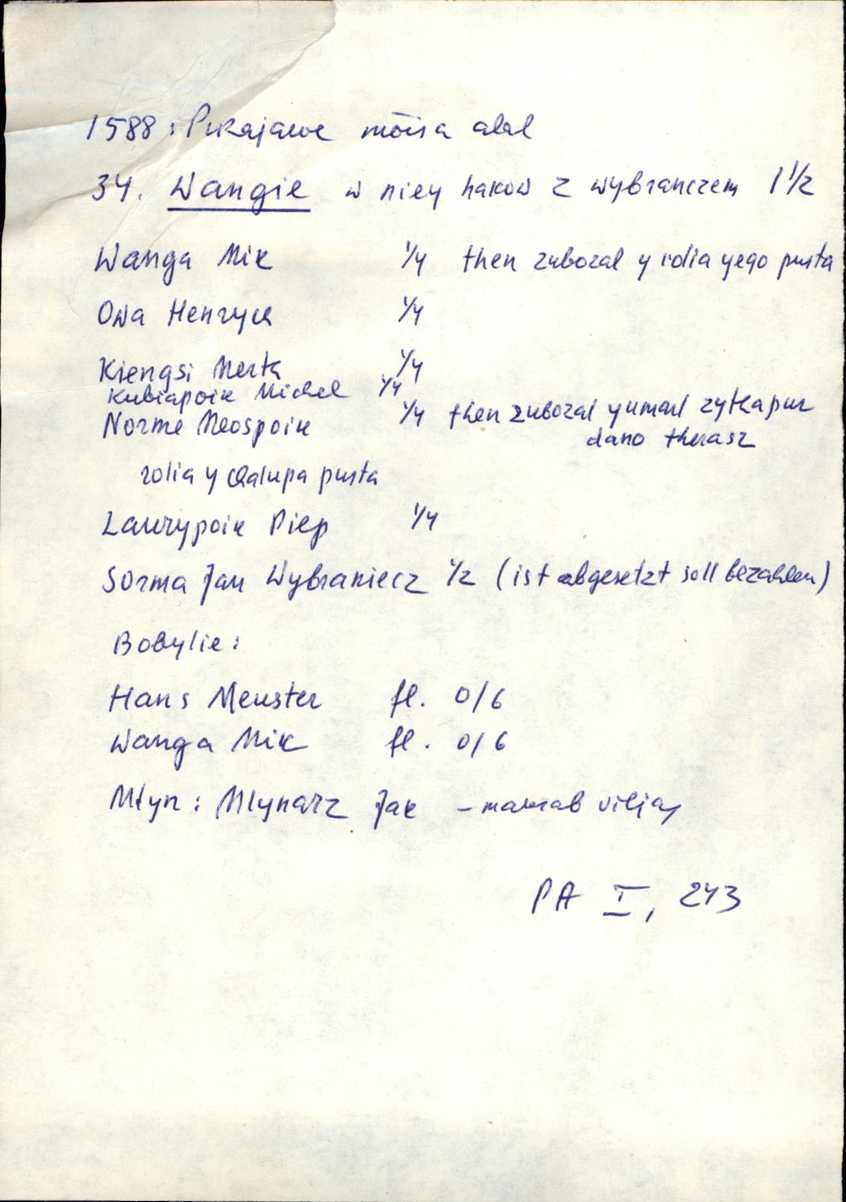 1588: Purajaerve mõisa alal
34. Wangie w niey hakow z wybranczem 1 1/2
Wanga Mik 1/4 then zubozal y rolia yego pusta
Owa Henryck 1/4
Kiengsi Merta 1/4
Kubiapoik Michel 1/4
Norme Meospoik 1/4 then zubozal y umarl
dano therasz
rolia y chalupa pusta
Laurypoik Piep 1/4
Sorma Jan Wybraniecz 1/2 (ist abgesetzt soll bezahlen)
Bobylie:
Hans Meuster fl. 0/6
Wanga Mik fl. 0/6
Młyn: Mlynarz Jak –
PA I, 243